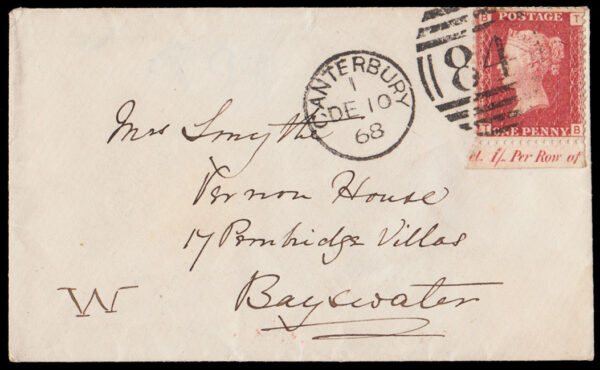 CANTERBURY
1
DE 10
68
84
B POSTAGE T
T ONE PENNY B
et. 1/- Per Row of
Mrs Smythe
Vernon House
17 Pembridge Villas
Bayswater
W